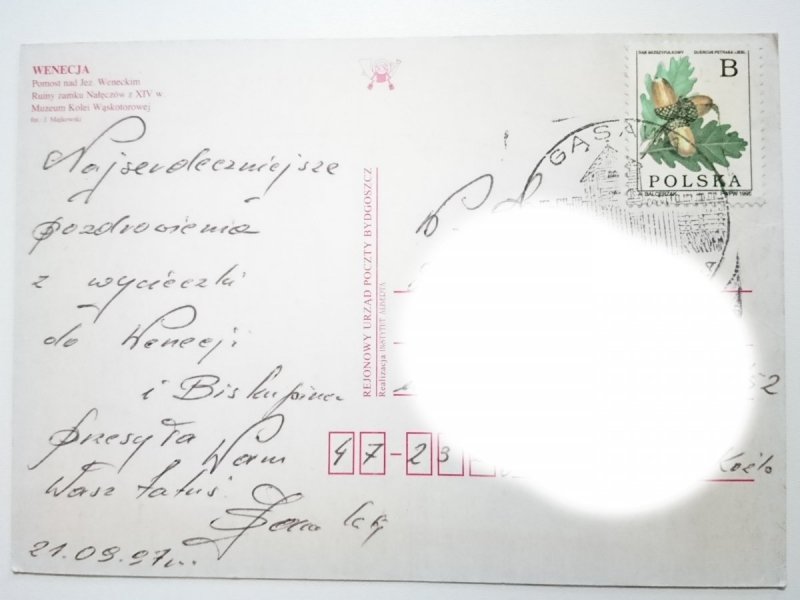 WENECJA
Pomost nad Jez. Weneckim
Ruiny zamku Nałęczów z XIV w.
Muzeum Kolei Wąskotorowej
fot. J. Majkowski
Najserdeczniejsze
pozdrowienia
z wycieczki
do Wenecji
i Biskupina
przesyła Wam
Wasz tatuś
21.09.97r.
REJONOWY URZĄD POCZTY BYDGOSZCZ
Realizacja INSTYTUT ALBERTA
DĄB BEZSZYPUŁKOWY QUERCUS PETRAEA LIEBL.
B
POLSKA
A. BALCERZAK PWPW 1995
GĄSAWA
52
47-23
Koźle